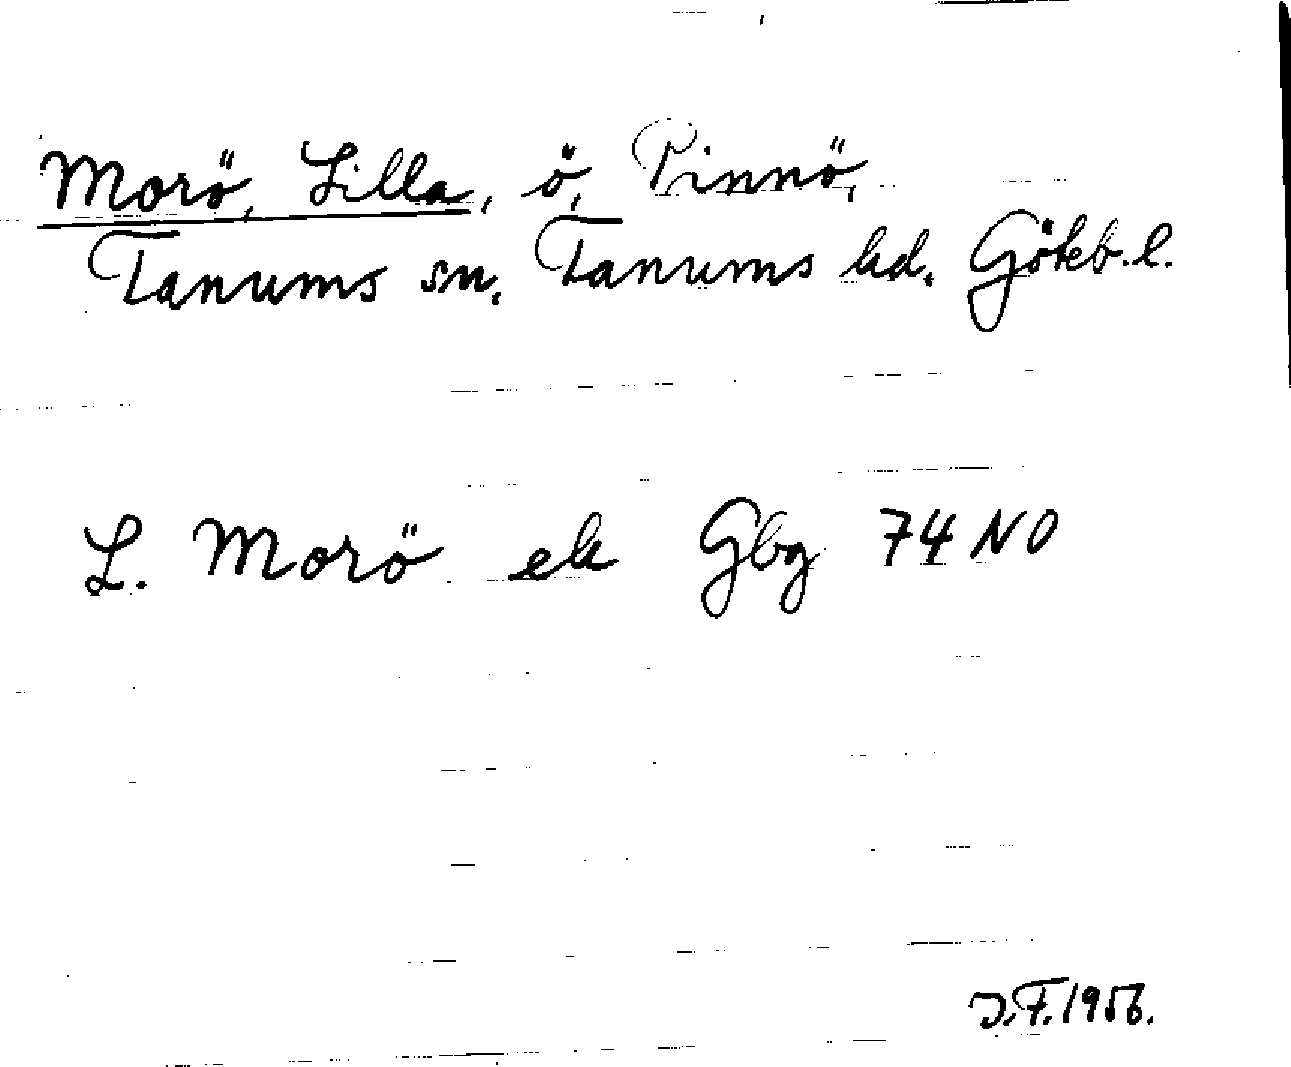 Morö, Lilla, ö, Pinnö,
Tanums sn. Tanums hd. Göteb. l.
L. Morö ek Gbg 74 NO
J.F. 1956.